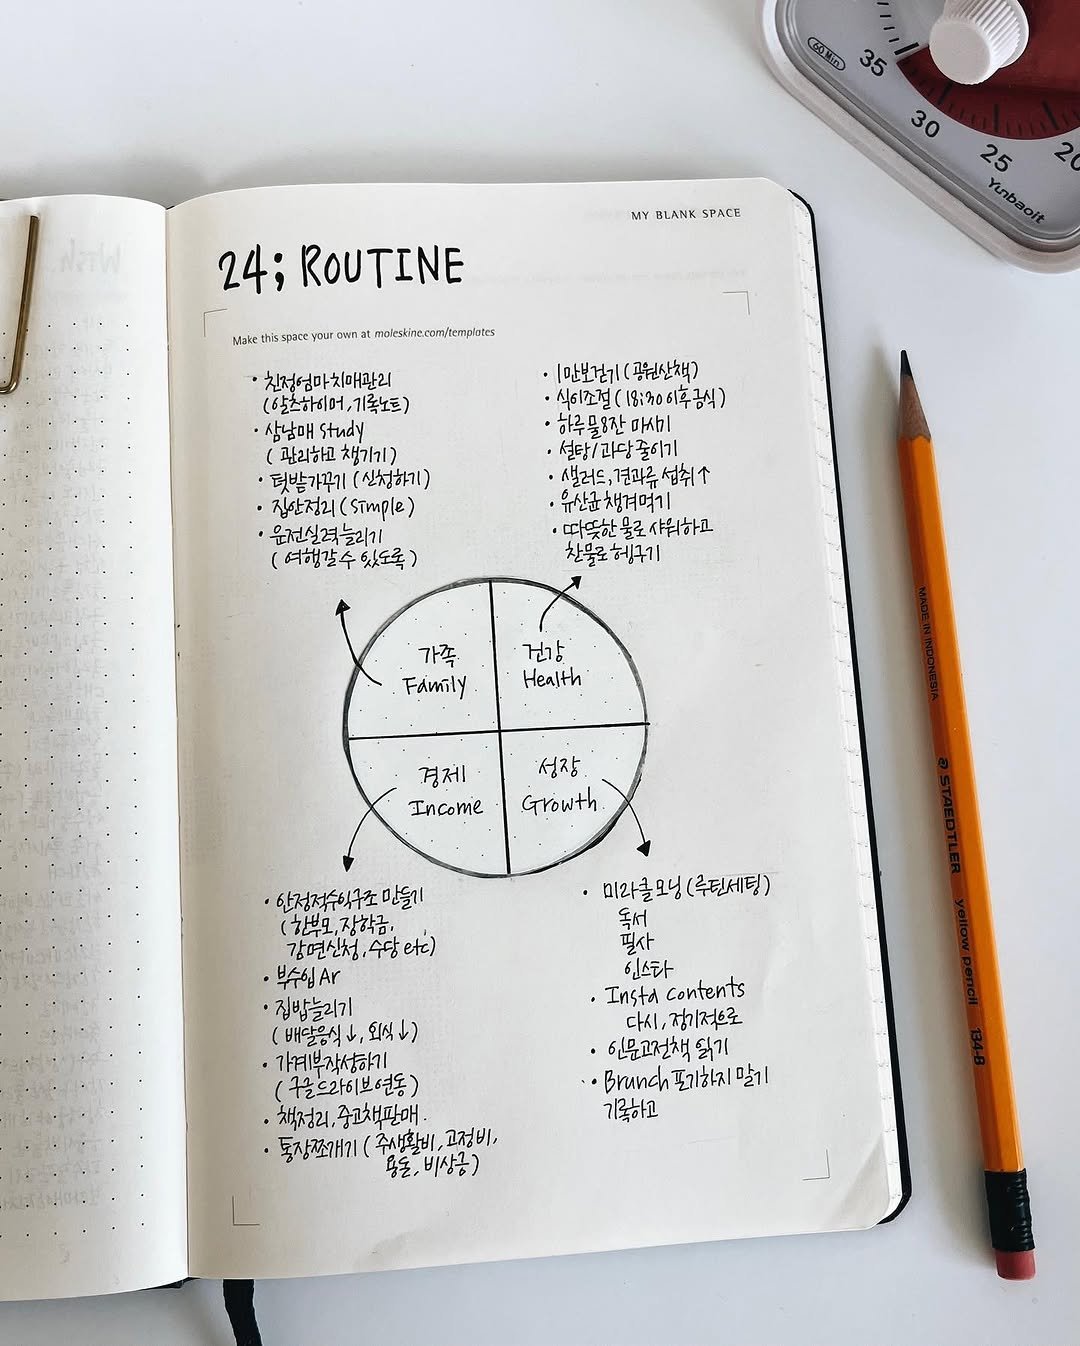 MY BLANK SPACE
24; ROUTINE
Make this space your own at moleskine.com/templates
• 친정엄마치매관리
(알츠하이머, 기록노트)
• 삼남매 study
(관리하고 챙기기)
• 텃밭가꾸기 (신청하기)
• 집안정리 (simple)
• 운전실력늘리기
(여행갈 수 있도록)
• 1만보걷기 (공원산책)
• 식이조절 (18:30 이후 금식)
• 하루 물8잔 마시기
• 설탕/과당 줄이기
• 샐러드, 견과류 섭취↑
• 유산균 챙겨먹기
• 따뜻한 물로 샤워하고
찬물로 헹구기
가족
Family
건강
Health
경제
Income
성장
Growth
• 안정적수익구조 만들기
(한부모, 장학금,
감면신청, 수당 etc)
• 부수입 Ar
• 집밥늘리기
(배달음식↓, 외식↓)
• 가계부작성하기
(구글드라이브연동)
• 책정리, 중고책판매.
• 통장쪼개기 (주생활비, 고정비,
용돈, 비상금)
• 미라클모닝 (루틴세팅)
독서
필사
인스타
• Insta contents
다시, 정기적으로
• 인문고전책 읽기
• Brunch 포기하지 말기
기록하고
60 Min
35
30
25
20
Yunbaoit
MADE IN INDONESIA
STAEDTLER
yellow pencil
134-B
Wish